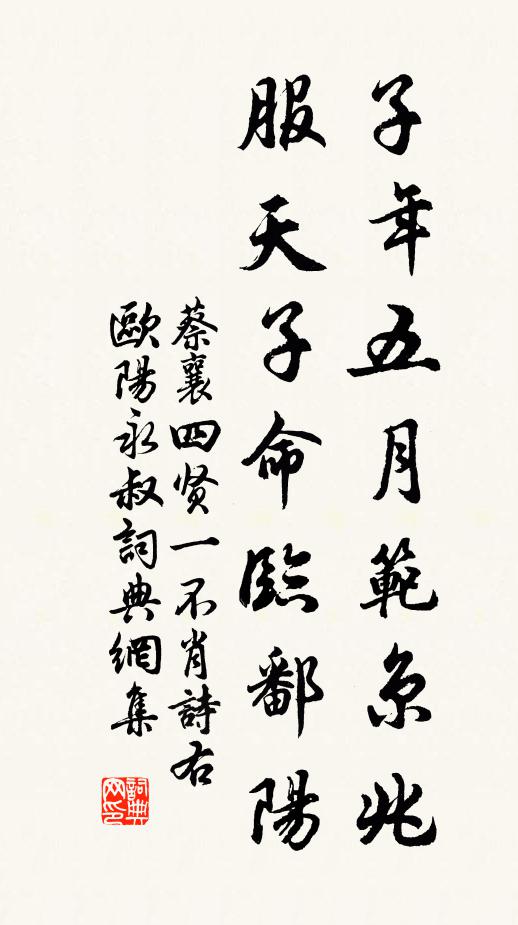 子年五月範京兆
服天子命臨鄱陽
蔡襄四贤一不肖詩右
歐陽永叔詞典網集
詞典网印